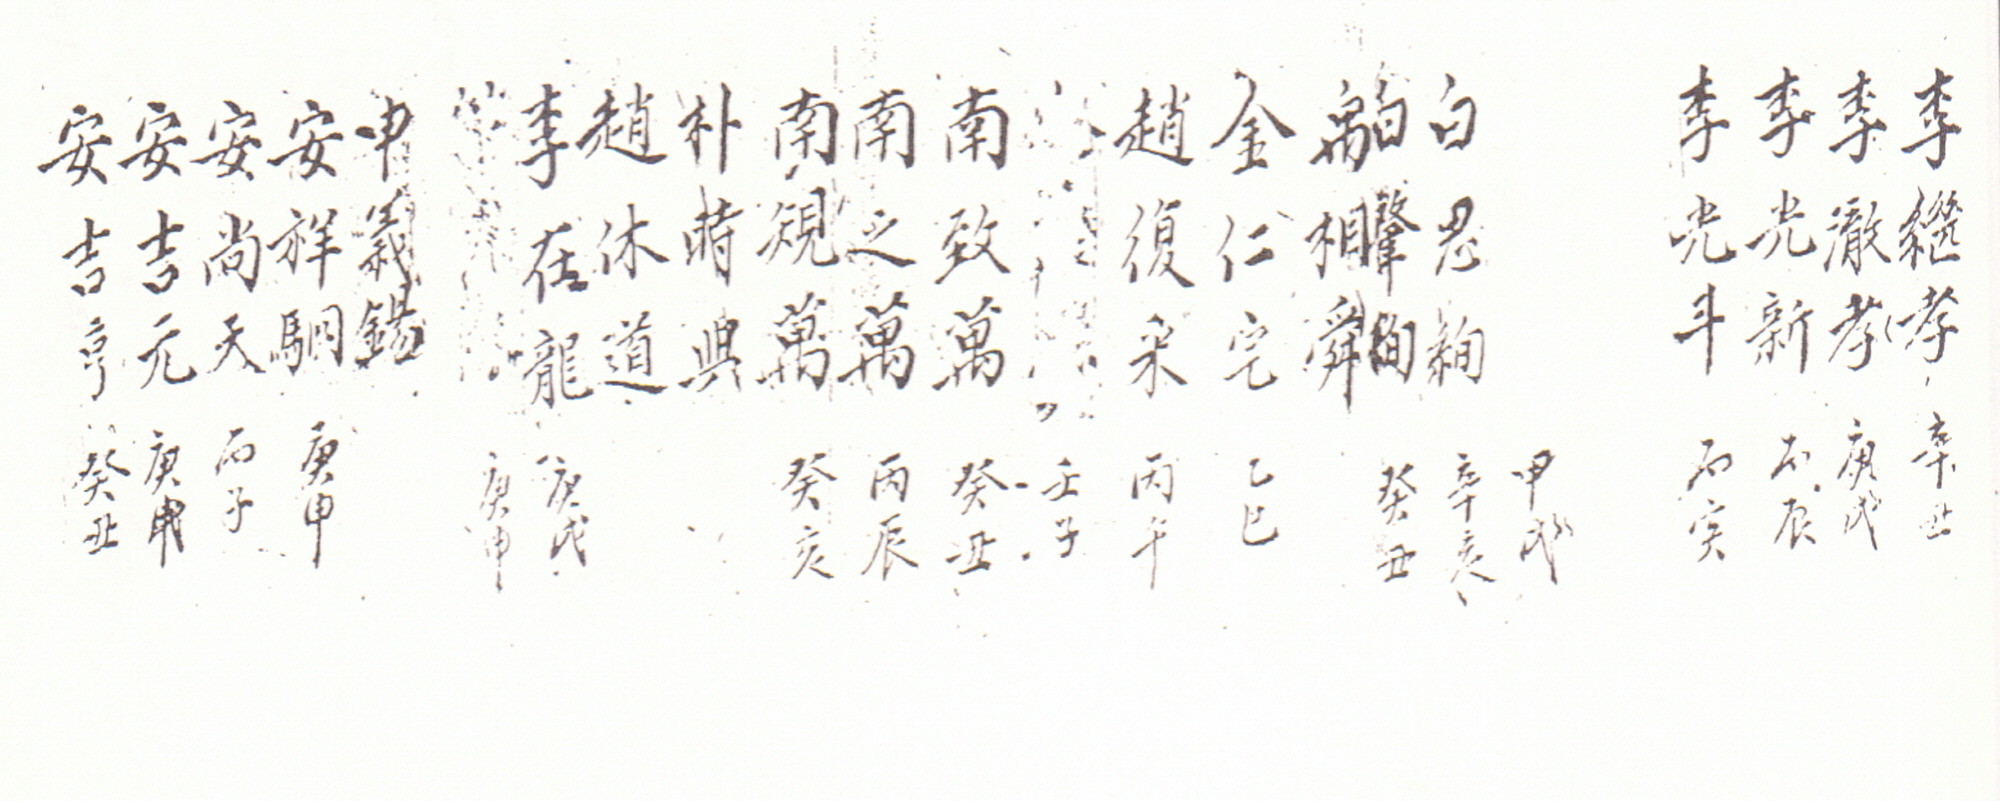 李繼孝 辛丑
李澈孝 庚戌
李光新 丙辰
李光斗 丙寅
甲戌
白忍絢 辛亥
白肇絢 癸丑
禹相舜
金仁宅 乙巳
趙復采 丙午
壬子
南致萬 癸丑
南之萬 丙辰
南覌萬 癸亥
朴時典
趙休道
李在龍 庚戌
庚申
申義錫
安祥駉 庚申
安尚天 丙子
安吉元 庚申
安吉亨 癸丑